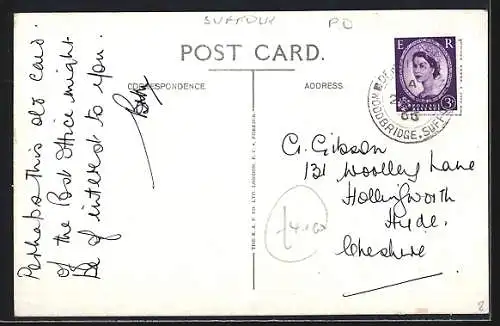 SUFFOLK PO
POST CARD.
CORRESPONDENCE
ADDRESS
E R
3D
WOODBRIDGE. SUFF
Perhaps this old card
of the Post Office might
be of interest to you.
Bob
G. Gibson
131 Woolley Lane
Hollingworth
Hyde.
Cheshire
£4.00
2